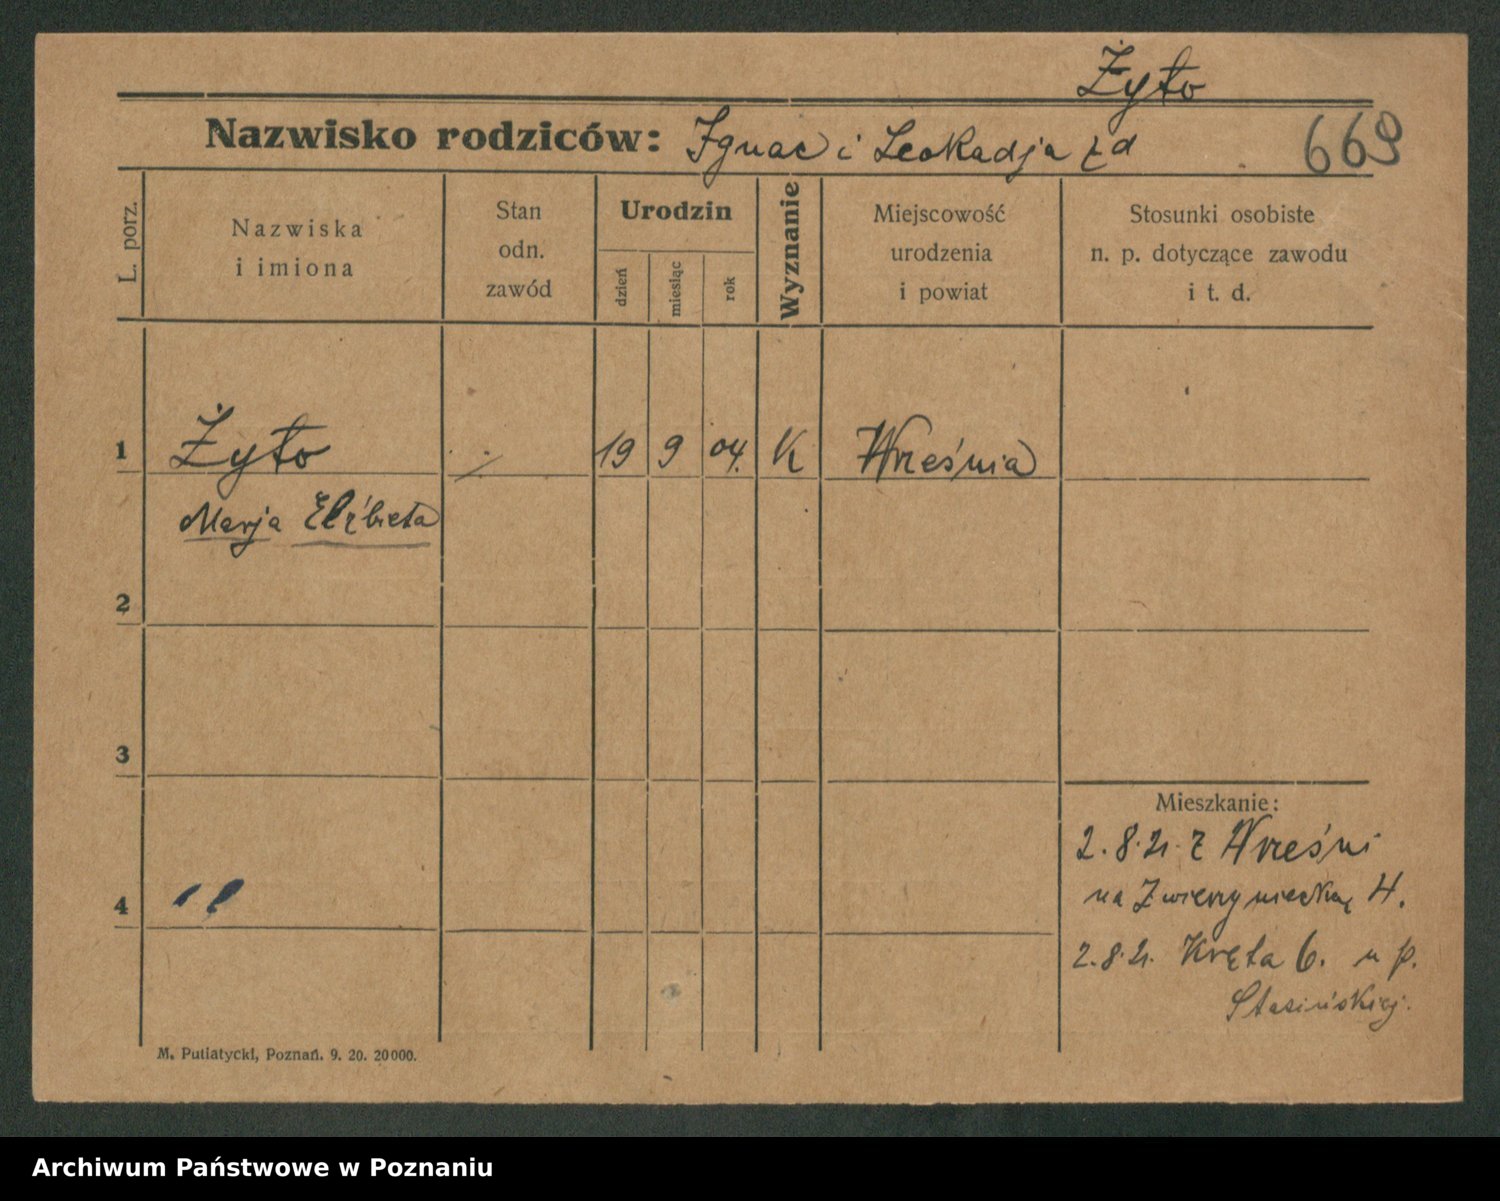 Żyto
Nazwisko rodziców: Ignac i Leokadja zd
669
L. porz.
Nazwiska
i imiona
Stan
odn.
zawód
Urodzin
dzień
miesiąc
rok
Wyznanie
Miejscowość
urodzenia
i powiat
Stosunki osobiste
n. p. dotyczące zawodu
i t. d.
1 Żyto 19 9 04. K Września
Marja Elżbieta
2
3
4
Mieszkanie:
2.8.21. z Wrześni
na Zwierzyniecką 4.
2.8.21. Kręta 6. u p.
Stasińskiej.
M. Putiatycki, Poznań. 9. 20. 20000.
Archiwum Państwowe w Poznaniu